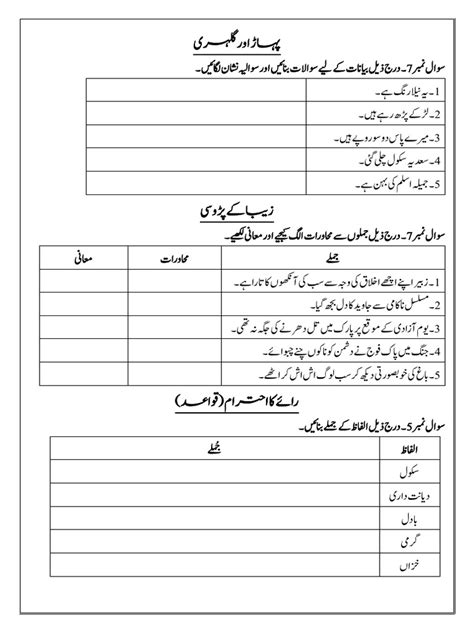 پہاڑ اور گلہری
سوال نمبر 7۔ درج ذیل بیانات کے لیے سوالات بنائیں اور سوالیہ نشان لگائیں۔
1۔ یہ نیلا رنگ ہے۔
2۔ لڑکے پڑھ رہے ہیں۔
3۔ میرے پاس دو سو روپے ہیں۔
4۔ سعدیہ سکول چلی گئی۔
5۔ جمیلہ اسلم کی بہن ہے۔
زیبا کے پڑوسی
سوال نمبر 7۔ درج ذیل جملوں سے محاورات الگ کیجیے اور معانی لکھیے۔
جملے محاورات معانی
1۔ زبیر اپنے اچھے اخلاق کی وجہ سے سب کی آنکھوں کا تارا ہے۔
2۔ مسلسل ناکامی سے جاوید کا دل بجھ گیا۔
3۔ یوم آزادی کے موقع پر پارک میں تل دھرنے کی جگہ نہ تھی۔
4۔ جنگ میں پاک فوج نے دشمن کو ناکوں چنے چبوائے۔
5۔ باغ کی خوبصورتی دیکھ کر سب لوگ اش اش کر اٹھے۔
رائے کا احترام (قواعد)
سوال نمبر 5۔ درج ذیل الفاظ کے جملے بنائیں۔
الفاظ جُملے
سکول
دیانت داری
بادل
گرمی
خزاں